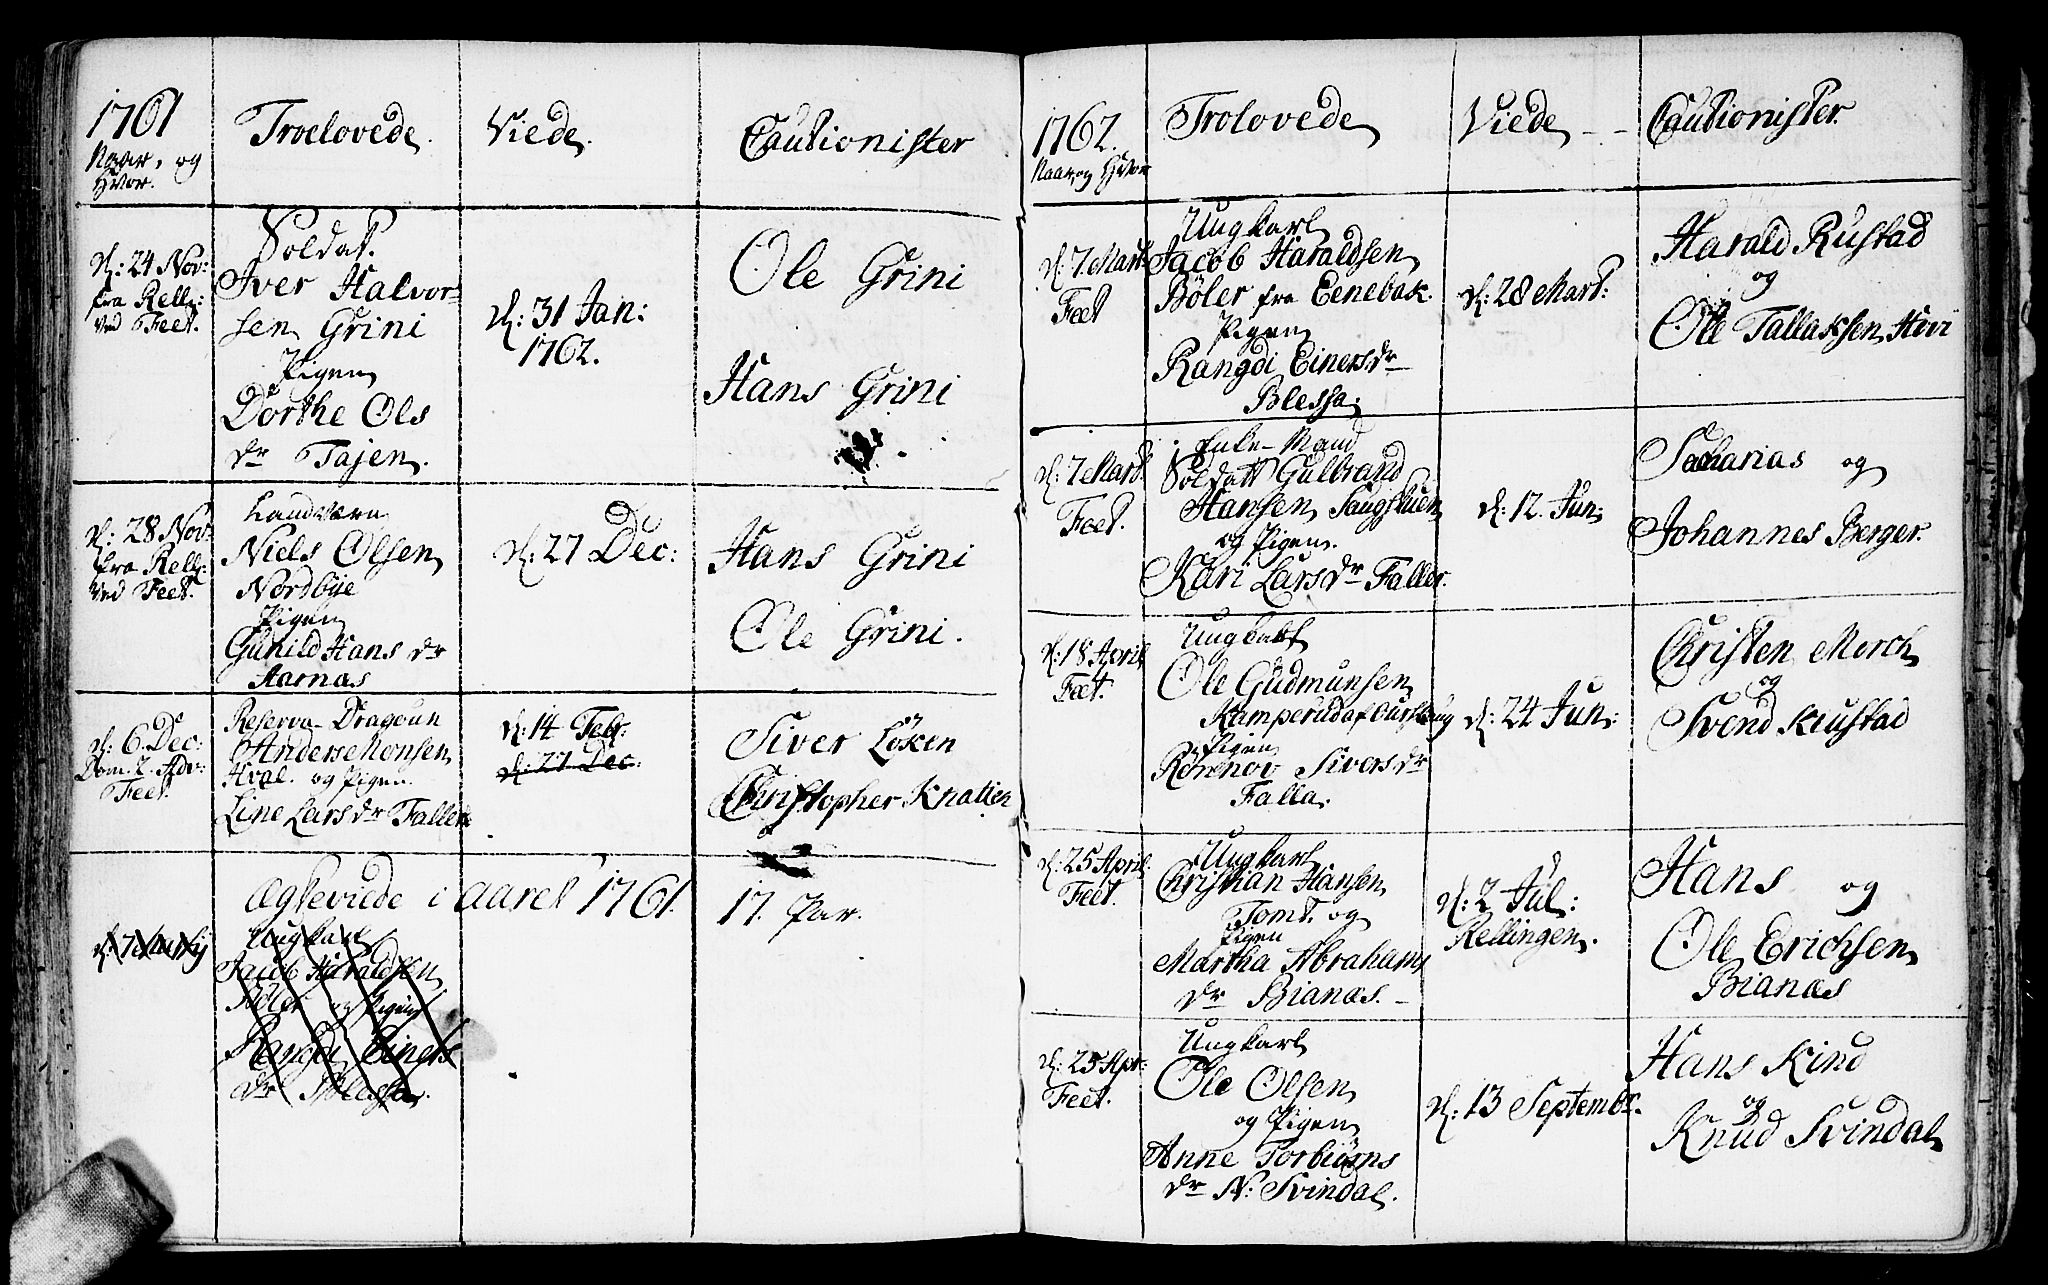 1761
Naar, og
Hvor.
Troelovede.
Viede.
Cautionister
d: 24 Nov:
fra Rell:
ved Feet.
Soldat.
Iver Halvor-
sen Grini
Pigen
Dorthe Ols
dr Tajen.
d: 31 Jan:
1762.
Ole Grini
Hans Grini
d: 28 Nov:
fra Rell:
ved Feet.
Landværn
Niels Olsen
Nordbye
Pigen
Gunild Hans dr
Aarnæs
d: 27 Dec:
Hans Grini
Ole Grini.
d: 6. Dec:
Dom. 2. Adv:
Feet.
Reserve-Dragoun
Anders Monsen
Hval. og Pigen.
Line Lars dr Faller
d: 14 Febr:
d: 27 Dec:
Siver Løken
Christopher Knatten
Ægteviede i Aaret 1761. 17. Par.
Ungkarl
Jacob Haraldsen
Bøler og Pigen
Rangdi Einers
dr Blessa.
1762.
Naar og Hvor
Trolovede
Viede - -
Cautionister.
d: 7 Mart:
Feet
Ungkarl
Jacob Haraldsen
Bøler fra Eenebak.
Pigen
Rangdi Einers dr
Blessa.
d: 28 Mart:
Harald Rustad
og
Ole Tallaksen Hovi
d: 7 Mart.
Feet.
Enke-Mand
Soldatt Gulbrand
Hansen Saugstuen
og Pigen.
Kari Lars dr Faller.
d: 12. Jun:
Sacharias og
Johannes Berger.
d: 18 April
Feet.
Ungkarl
Ole Gudmunsen
Kamperud af Ourskoug
Pigen
Rønnov Sivers dr
Falla.
d: 24 Jun:
Christen Morch
og
Svend Kiustad
d: 25 April.
Feet.
Ungkarl
Christian Hansen
Tomt. og
Pigen
Martha Abrahams
dr Bianæs. -
d: 2 Jul:
Rellingen.
Hans og
Ole Erichsen
Bianæs
d: 25 Apr:
Feet.
Ungkarl
Ole Olsen
og Pigen
Anne Torbiørns
dr N: Svindal.
d: 13 Septembr.
Hans Kind
og
Knud Svindal